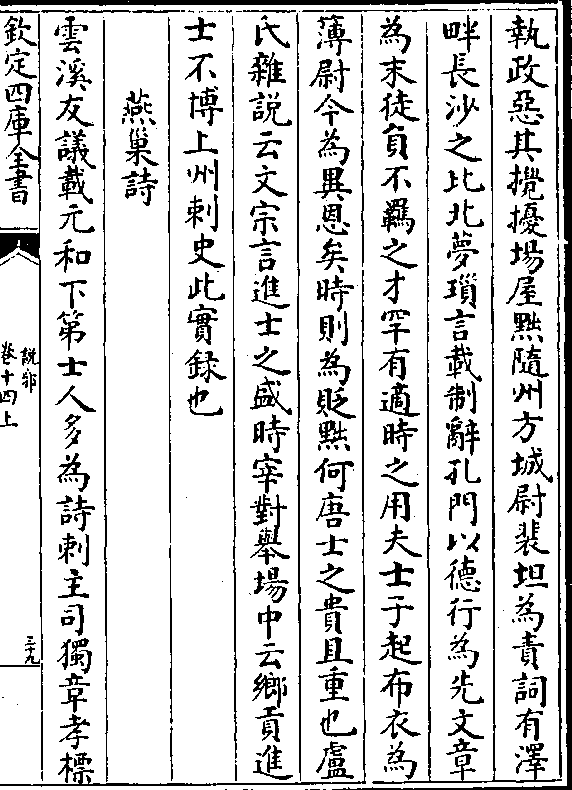 執政惡其攪擾場屋黜隨州方城尉裴坦為責詞有澤
畔長沙之比北夢瑣言載制辭孔門以德行為先文章
為末徒負不羈之才罕有適時之用夫士子起布衣為
薄尉今為異恩矣時則為貶黜何唐士之貴且重也盧
氏雜說云文宗言進士之盛時宰對舉場中云鄉貢進
士不博上州刺史此實録也
燕巢詩
雲溪友議載元和下第士人多為詩刺主司獨章孝標
欽定四庫全書
說郛
卷十四上
三十九